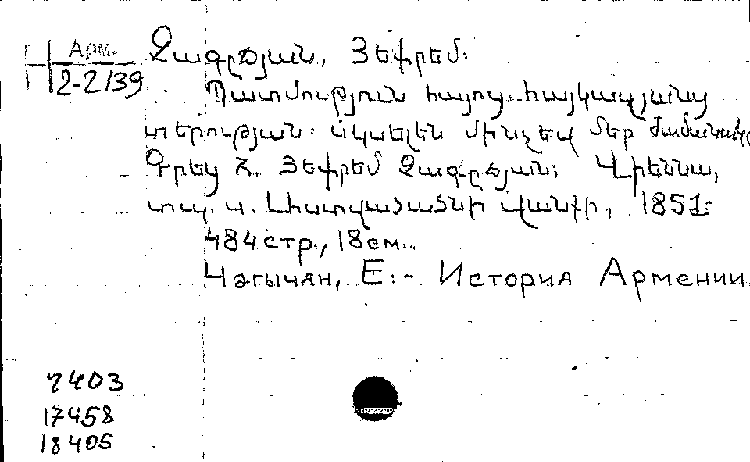 Арм.
2-2139
Չագըճյան, Յեփրեմ:
Պատմություն հայոց հայկազյանց
տերության: սկսելեն մինչեվ մեր ժամանակը
Գրեց Հ. Յեփրեմ Չագըճյան: Վիեննա,
տպ. Մ. Աստվածածնի վանքի, 1851:
484 стр., 18 см..
Чагычян, Е:- История Армении.
7403
17458
18405